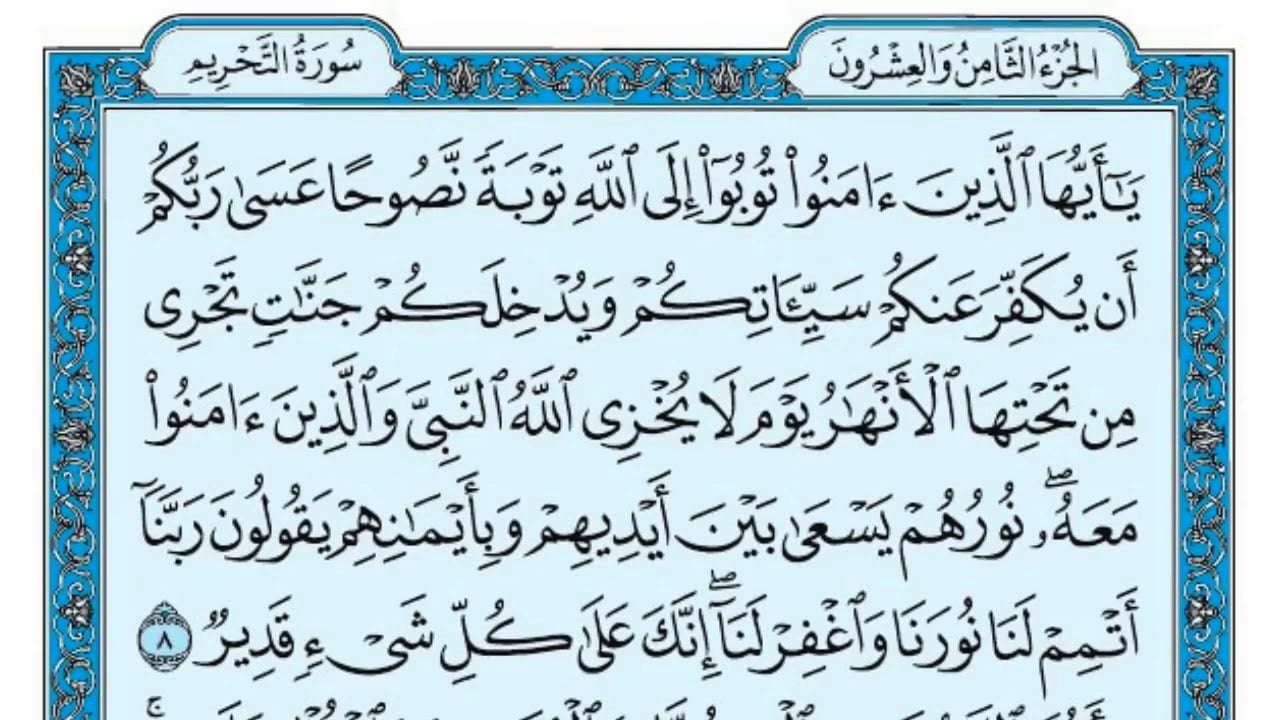 الجُزْءُ الثَّامِنُ وَالعِشْرُونَ
سُورَةُ التَّحْرِيمِ
يَـٰٓأَيُّهَا ٱلَّذِينَ ءَامَنُوا۟ تُوبُوٓا۟ إِلَى ٱللَّهِ تَوْبَةً نَّصُوحًا عَسَىٰ رَبُّكُمْ
أَن يُكَفِّرَ عَنكُمْ سَيِّـَٔاتِكُمْ وَيُدْخِلَكُمْ جَنَّـٰتٍ تَجْرِى
مِن تَحْتِهَا ٱلْأَنْهَـٰرُ يَوْمَ لَا يُخْزِى ٱللَّهُ ٱلنَّبِىَّ وَٱلَّذِينَ ءَامَنُوا۟
مَعَهُۥ ۖ نُورُهُمْ يَسْعَىٰ بَيْنَ أَيْدِيهِمْ وَبِأَيْمَـٰنِهِمْ يَقُولُونَ رَبَّنَآ
أَتْمِمْ لَنَا نُورَنَا وَٱغْفِرْ لَنَآ ۖ إِنَّكَ عَلَىٰ كُلِّ شَىْءٍ قَدِيرٌ ٨